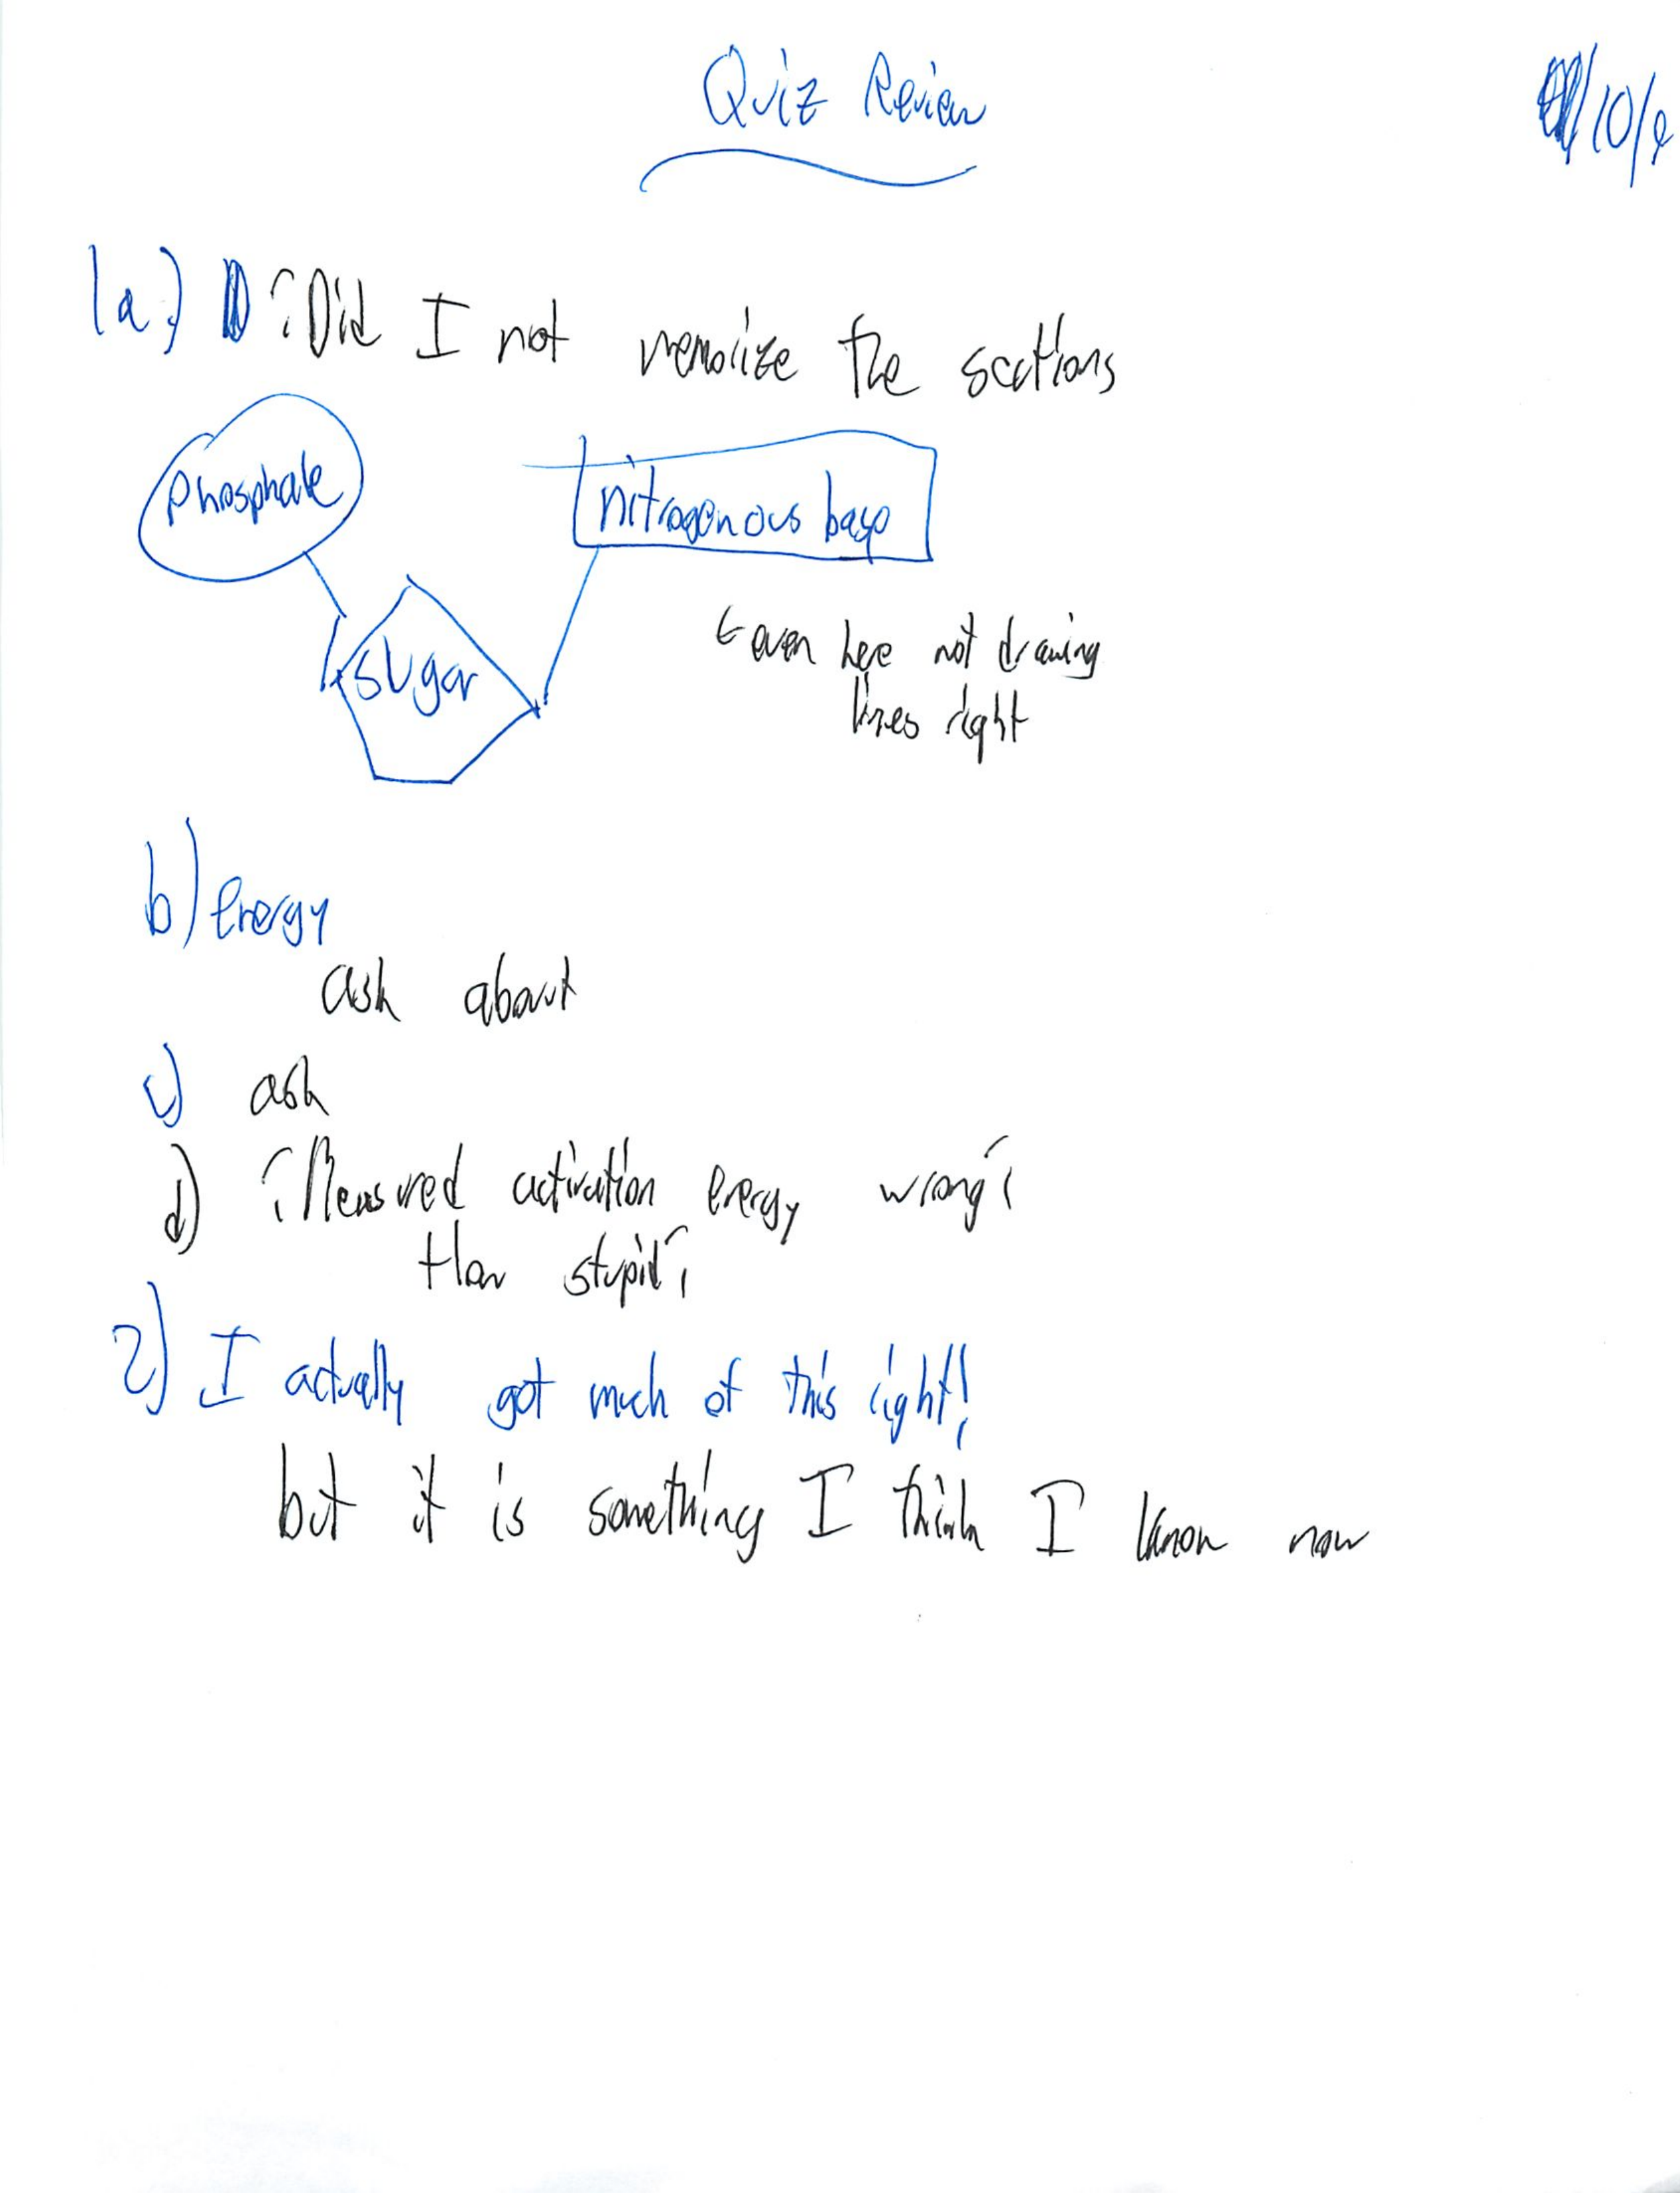 Quiz Review
/10/
1a.) ¿Did I not memorize the sections
phosphate
nitrogenous base
sugar
← even here not drawing
lines right
b) energy
ask about
c) ask
d) ¿Measured activation energy wrong?
How stupid?
2) I actually got much of this right!
but it is something I think I know now